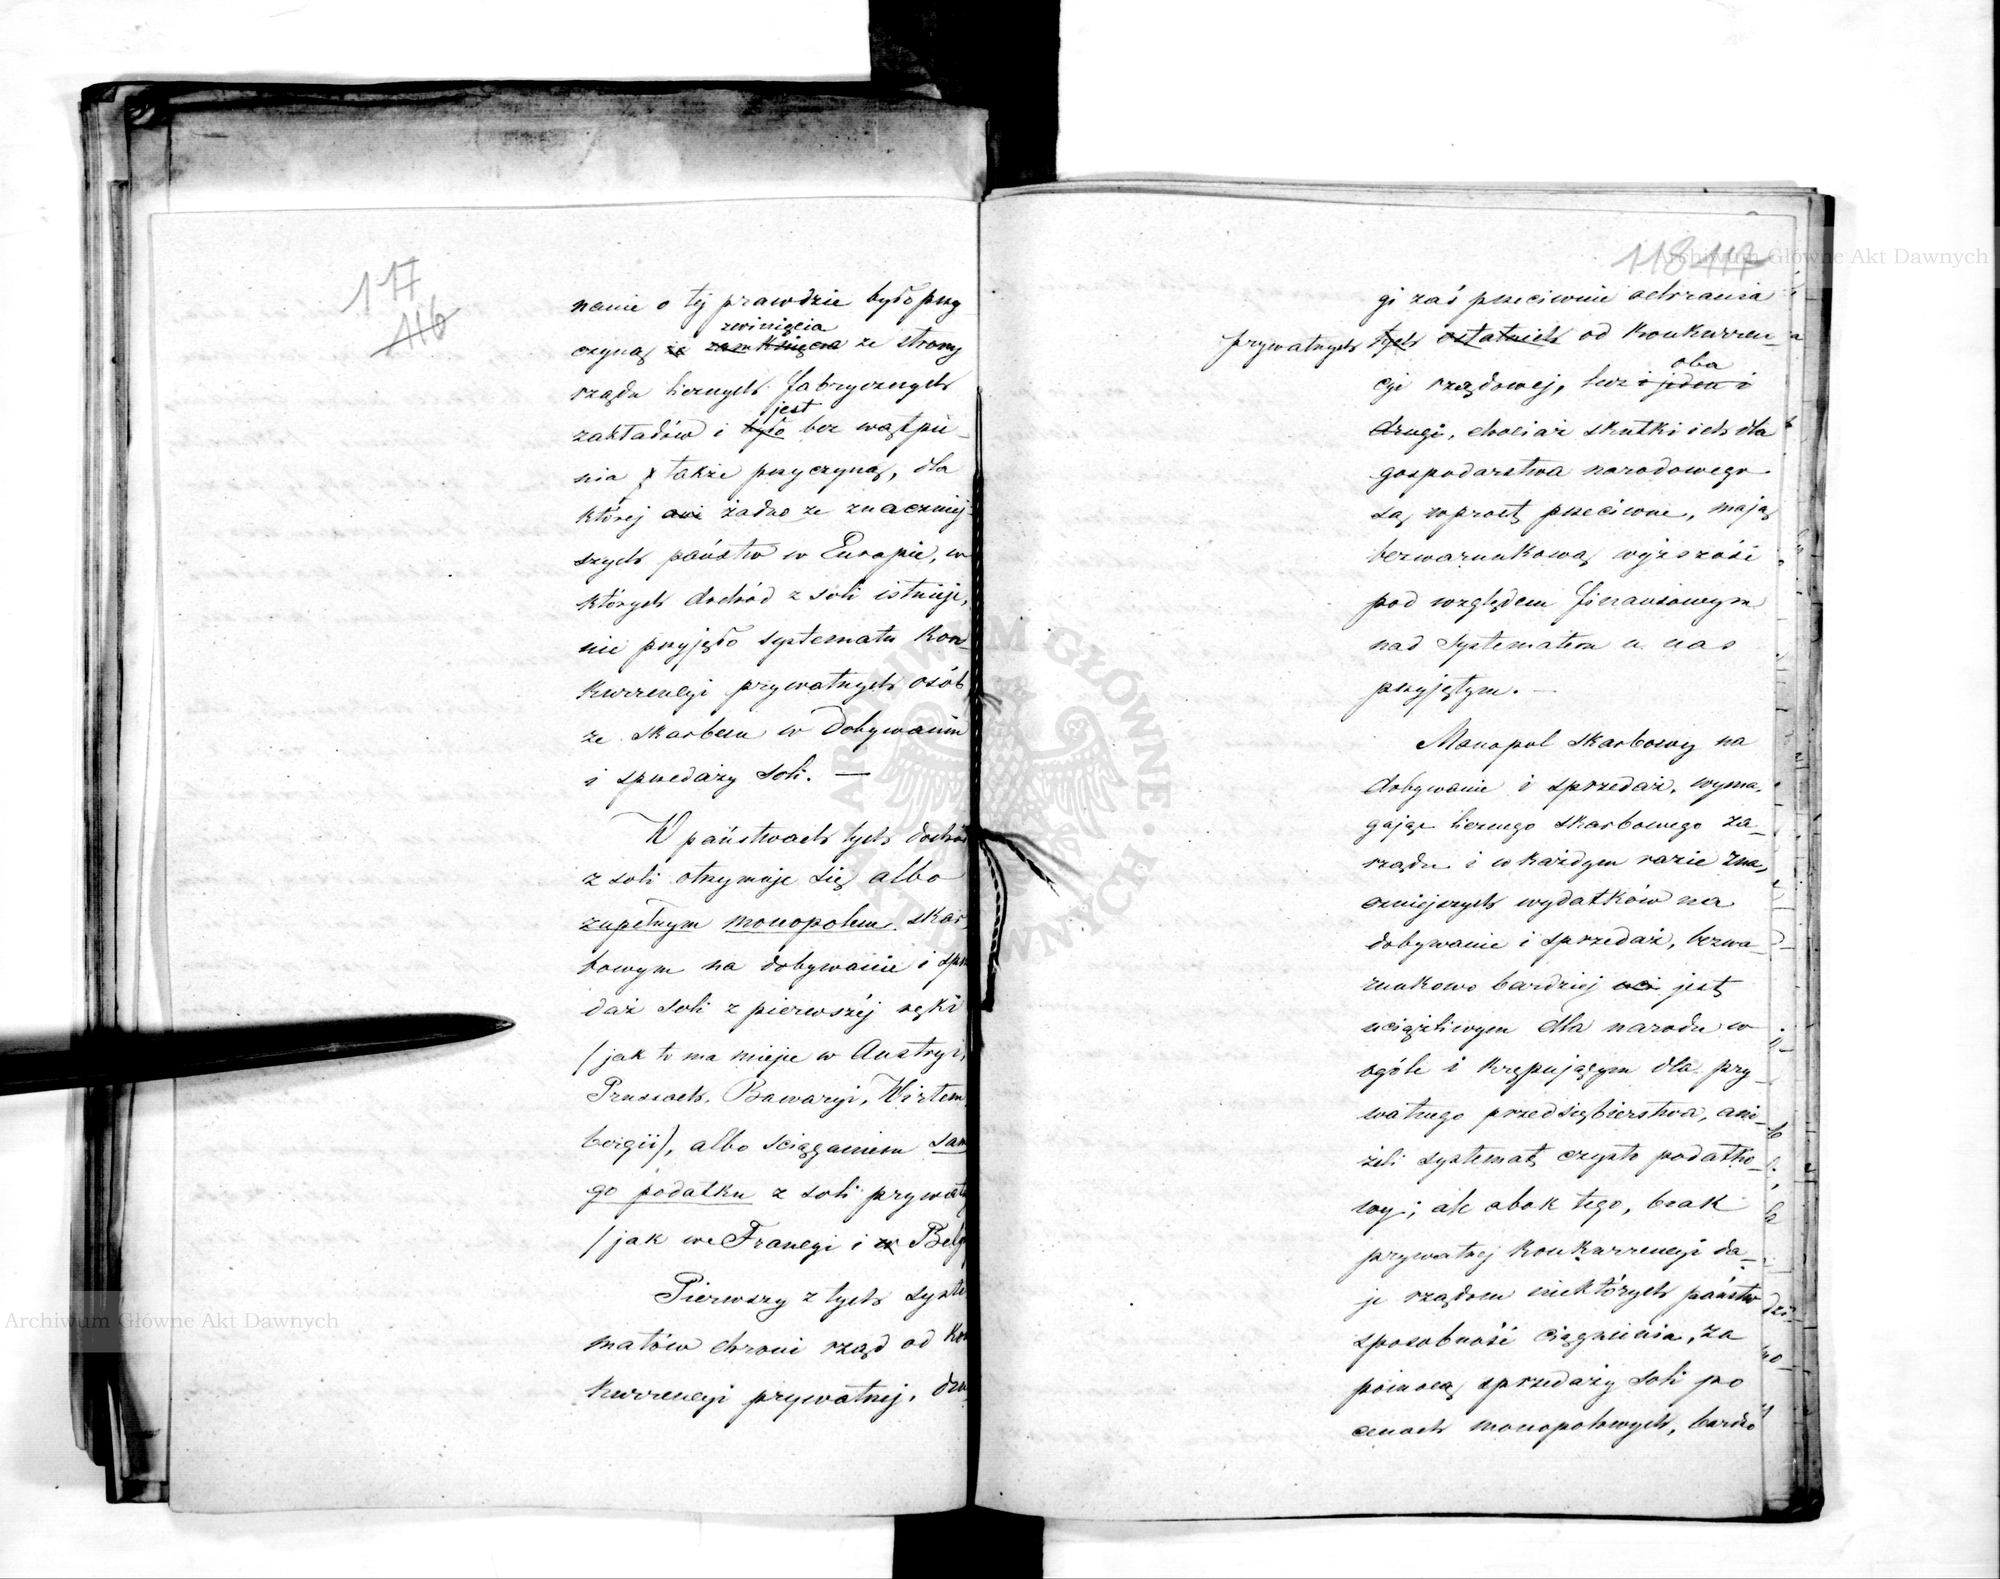 117
116
nanie o téj prawdzie było przy
zwinięcia
czyną że zamknięcia ze strony
rządu licznych fabrycznych
jest
zakładów i było bez wątpie-
nia także przyczyną, dla
której ani żadne ze znaczniej-
szych państw w Europie, w
których dochód z soli istnieje,
nie przyjęło systematu kon-
kurrencyi prywatnych osób
ze skarbem w dobywaniu
i sprzedaży soli. —
W państwach tych dochód
z soli otrzymuje się albo
zupełnym monopolem skar
bowym na dobywanie i sprze
daż soli z pierwszéj ręki
(jak to ma miejsce w Austryi,
Prusach, Bawaryi, Wirtem
bergii), albo ściąganiem same
go podatku z soli prywatn
(jak we Francyi i w Belg
Pierwszy z tych syste
matów chroni rząd od kon
kurrencyi prywatnej, dru
118 117
gi zaś przeciwnie ochrania
prywatnych tych ostatnich od konkurren-
oba
cyi rządowej, lecz i jeden i
drugi, chociaż skutki ich dla
gospodarstwa narodowego
są wprost przeciwne, mają
bezwarunkową wyższość
pod względem finansowym
nad systematem u nas
przyjętym. —
Monopol skarbowy na
dobywanie i sprzedaż, wyma-
gając licznego skarbowego za-
rządu i w każdym razie zna-
czniejszych wydatków na
dobywanie i sprzedaż, bezwa-
runkowo bardziej jest
uciążliwym dla narodu w
ogóle i krępującym dla pry-
watnego przedsiębierstwa, ani-
żeli systemat czysto podatko-
wy; ale obok tego, brak
prywatnej konkurrencyi da-
je rządom niektórych państw
sposobność ciągnienia, za
pomocą sprzedaży soli po
cenach monopolowych, bardzo
Archiwum Główne Akt Dawnych
Archiwum Główne Akt Dawnych
ARCHIWUM GŁÓWNE AKT DAWNYCH